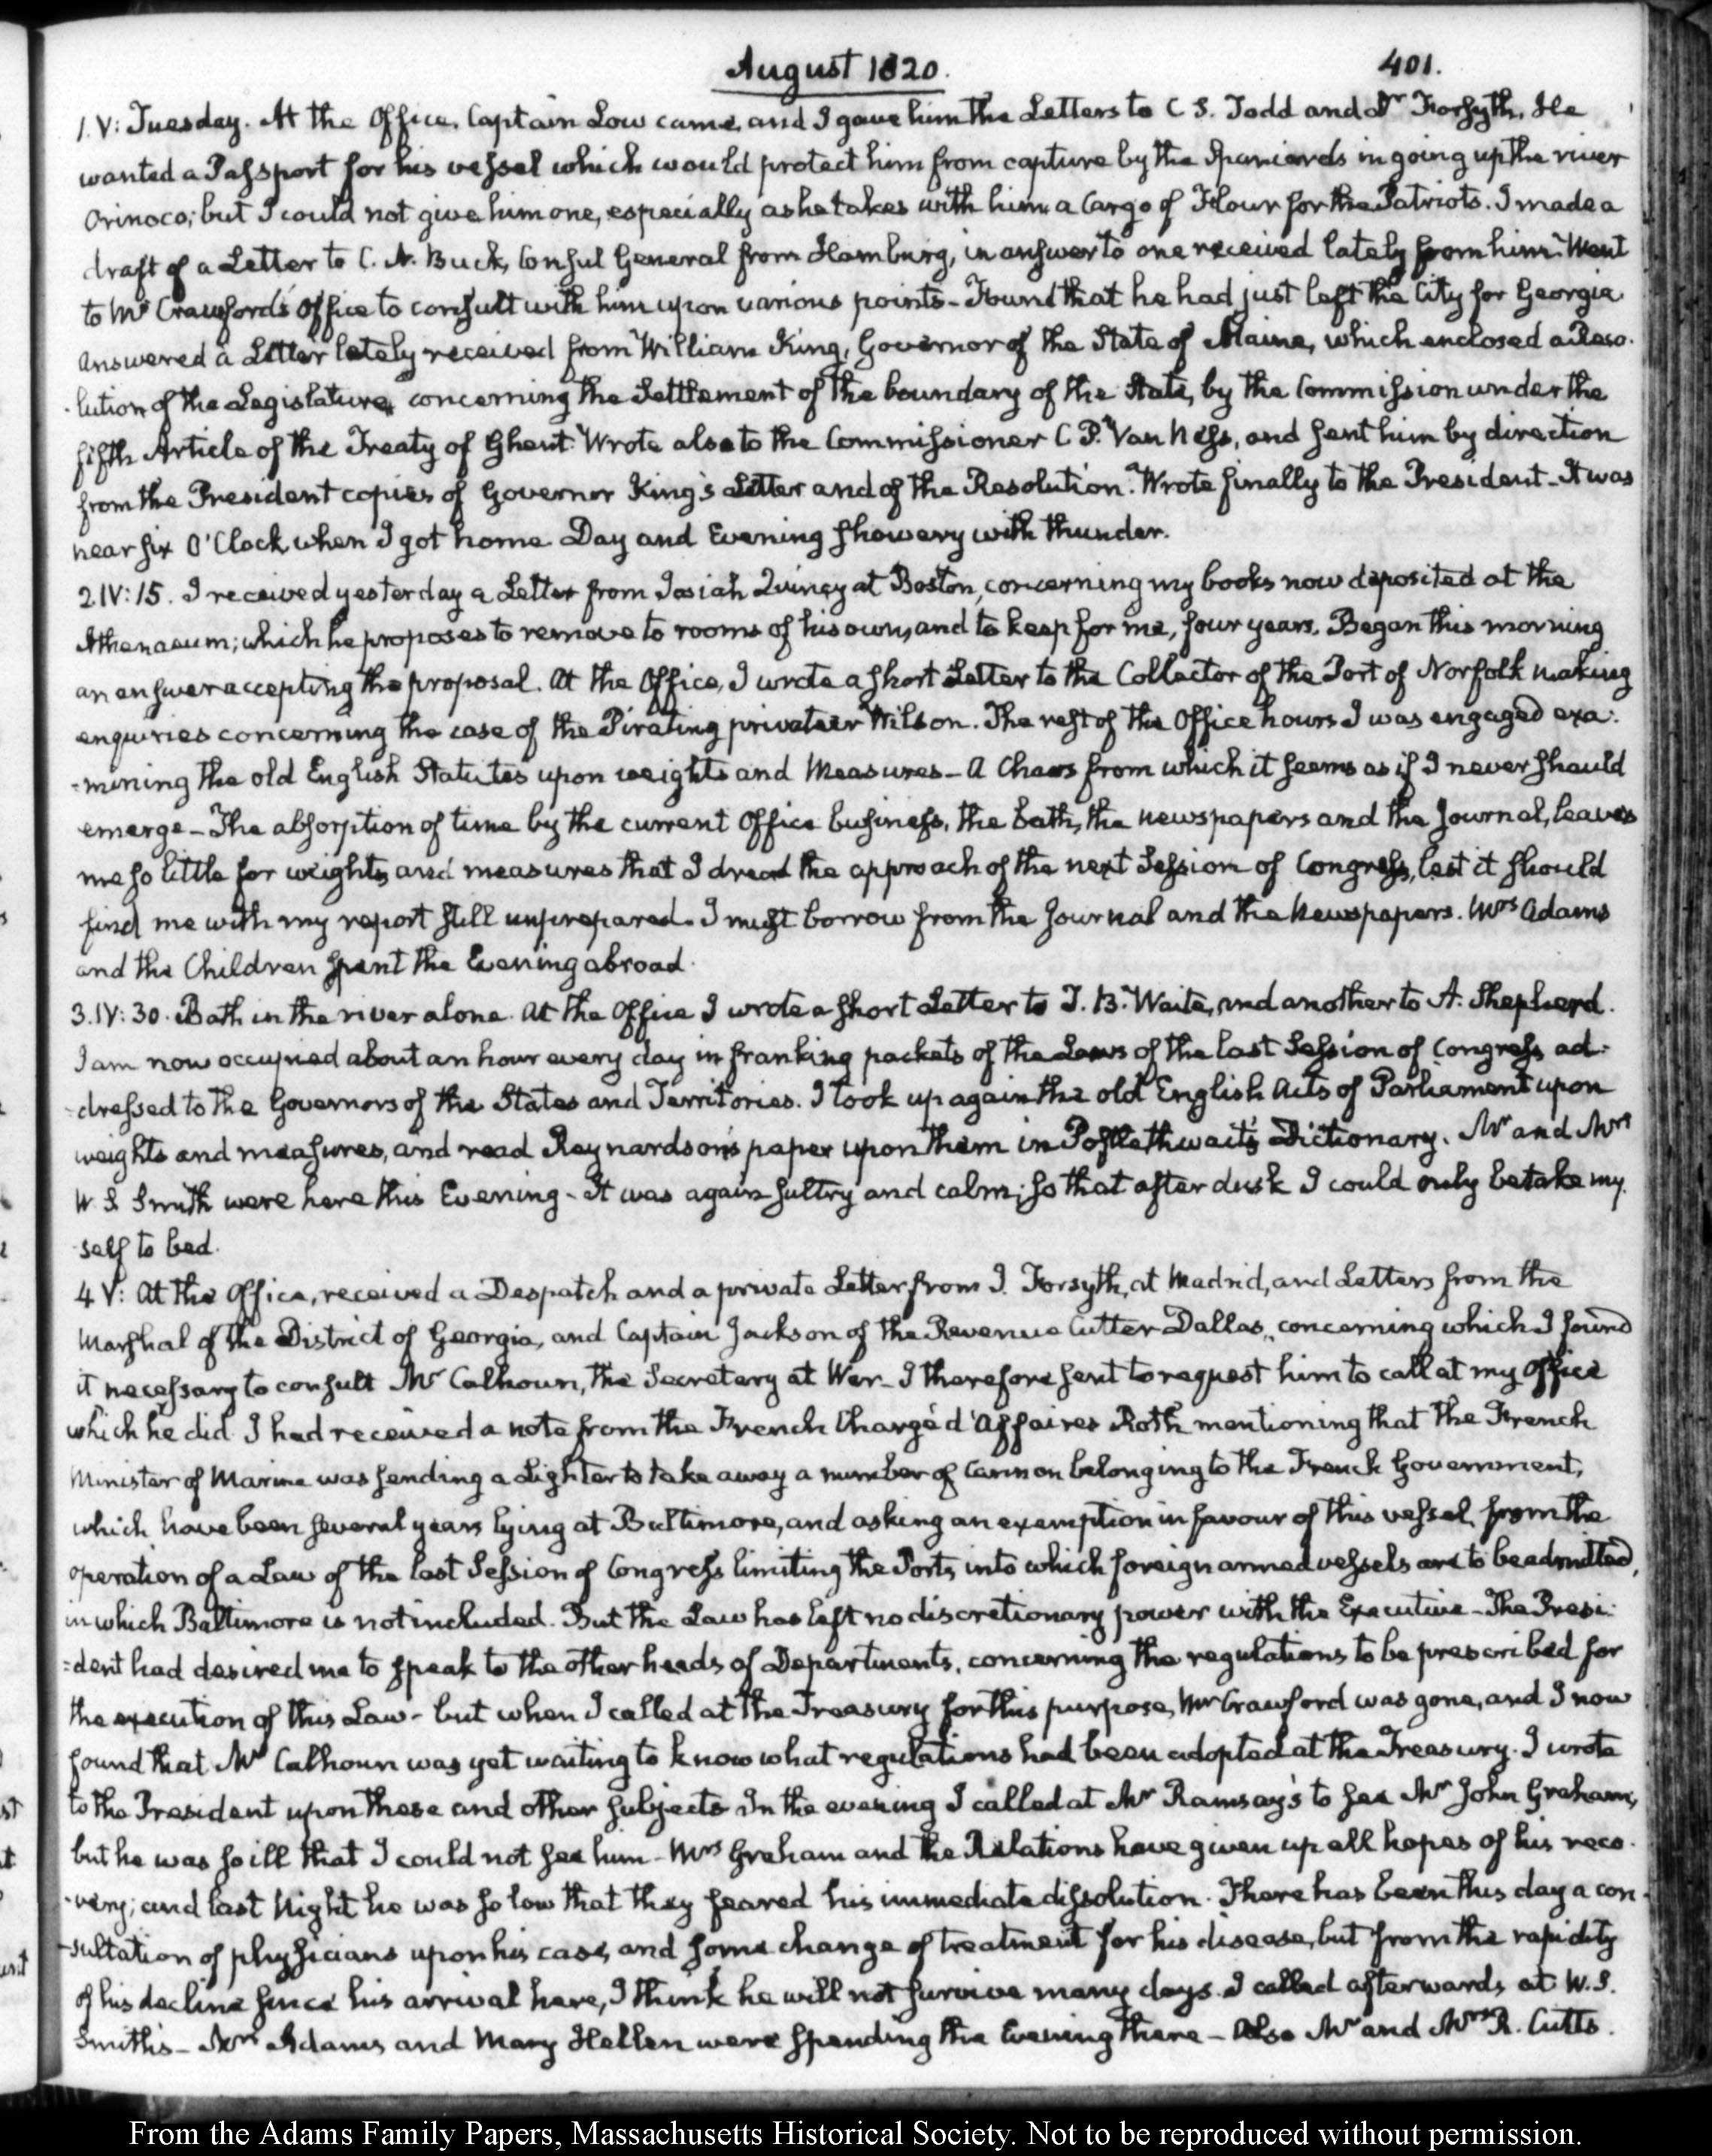 August 1820. 401.
1. V: Tuesday. At the Office. Captain Low came, and I gave him the Letters to C S. Todd and Dr Forsyth. He
wanted a Passport for his vessel which would protect him from capture by the Spaniards in going up the river
Orinoco; but I could not give him one, especially as he takes with him a Cargo of Flour for the Patriots. I made a
draft of a Letter to C. N. Buck, Consul General from Hamburg, in answer to one received lately from him. Went
to Mr Crawford's Office to consult with him upon various points - Found that he had just left the City for Georgia.
Answered a Letter lately received from William King, Governor of the State of Maine, which enclosed a Reso-
-lution of the Legislature, concerning the Settlement of the boundary of the State, by the Commission under the
fifth Article of the Treaty of Ghent. Wrote also to the Commissioner C P. Van Ness, and sent him by direction
from the President copies of Governor King's Letter and of the Resolution. Wrote finally to the President - It was
near six O'Clock when I got home. Day and Evening showery with thunder.
2. IV: 15. I received yesterday a Letter from Josiah Quincy at Boston, concerning my books now deposited at the
Athenaeum; which he proposes to remove to rooms of his own, and to keep for me, four years. Began this morning
an answer accepting the proposal. At the Office, I wrote a short Letter to the Collector of the Port of Norfolk making
enquiries concerning the case of the Pirating privateer Wilson. The rest of the Office hours I was engaged exa-
-mining the old English Statutes upon weights and Measures - A Chaos from which it seems as if I never should
emerge - The absorption of time by the current Office business, the bath, the newspapers and the Journal, leaves
me so little for weights and measures that I dread the approach of the next Session of Congress, lest it should
find me with my report still unprepared. I must borrow from the Journal and the Newspapers. Mrs Adams
and the Children spent the Evening abroad.
3. IV: 30. Bath in the river alone. At the Office I wrote a short Letter to T. B. Waite, and another to A. Shepherd.
I am now occupied about an hour every day in franking packets of the Laws of the last Session of Congress, ad-
-dressed to the Governors of the States and Territories. I took up again the old English Acts of Parliament upon
weights and measures, and read Raynardson's paper upon them in Postlethwait's Dictionary. Mr and Mrs
W. S Smith were here this Evening - It was again sultry and calm; so that after dusk I could only betake my
self to bed.
4 V: At the Office, received a Despatch and a private Letter from J. Forsyth, at Madrid, and Letters from the
Marshal of the District of Georgia, and Captain Jackson of the Revenue Cutter Dallas, concerning which I found
it necessary to consult Mr Calhoun, the Secretary at War - I therefore sent to request him to call at my Office
which he did. I had received a note from the French Chargé d'Affaires Roth mentioning that the French
Minister of Marine was sending a Lighter to take away a number of Cannon belonging to the French Government,
which have been several years lying at Baltimore, and asking an exemption in favour of this vessel, from the
operation of a Law of the last Session of Congress limiting the Ports, into which foreign armed vessels are to be admitted,
in which Baltimore is not included. But the Law has left no discretionary power with the Executive - The Presi-
-dent had desired me to speak to the other heads of Departments, concerning the regulations to be prescribed for
the execution of this Law - but when I called at the Treasury for this purpose, Mr Crawford was gone, and I now
found that Mr Calhoun was yet waiting to know what regulations had been adopted at the Treasury. I wrote
to the President upon these and other subjects In the evening I called at Mr Ramsay's to see Mr John Graham,
but he was so ill that I could not see him - Mrs Graham and the Relations have given up all hopes of his reco-
-very; and last Night he was so low that they feared his immediate dissolution. There has been this day a con-
-sultation of physicians upon his case, and some change of treatment for his disease, but from the rapidity
of his decline since his arrival here, I think he will not survive many days. I called afterwards, at W. S.
Smith's - Mrs Adams and Mary Hellen were spending the Evening there - Also Mr and Mrs R. Cutts.
From the Adams Family Papers, Massachusetts Historical Society. Not to be reproduced without permission.